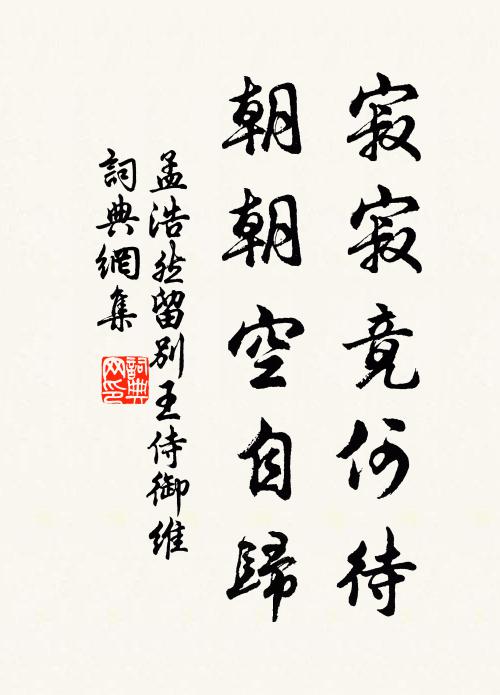 寂寂竟何待
朝朝空自歸
孟浩然留別王侍御維
詞典網集
詞典
网印